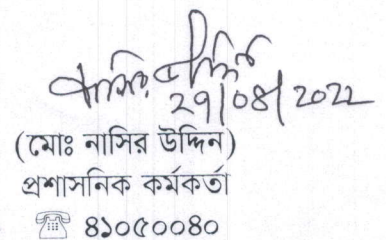 নাসির উদ্দিন
29/08/2022
(মোঃ নাসির উদ্দিন)
প্রশাসনিক কর্মকর্তা
☏ ৪১০৫০০৪০